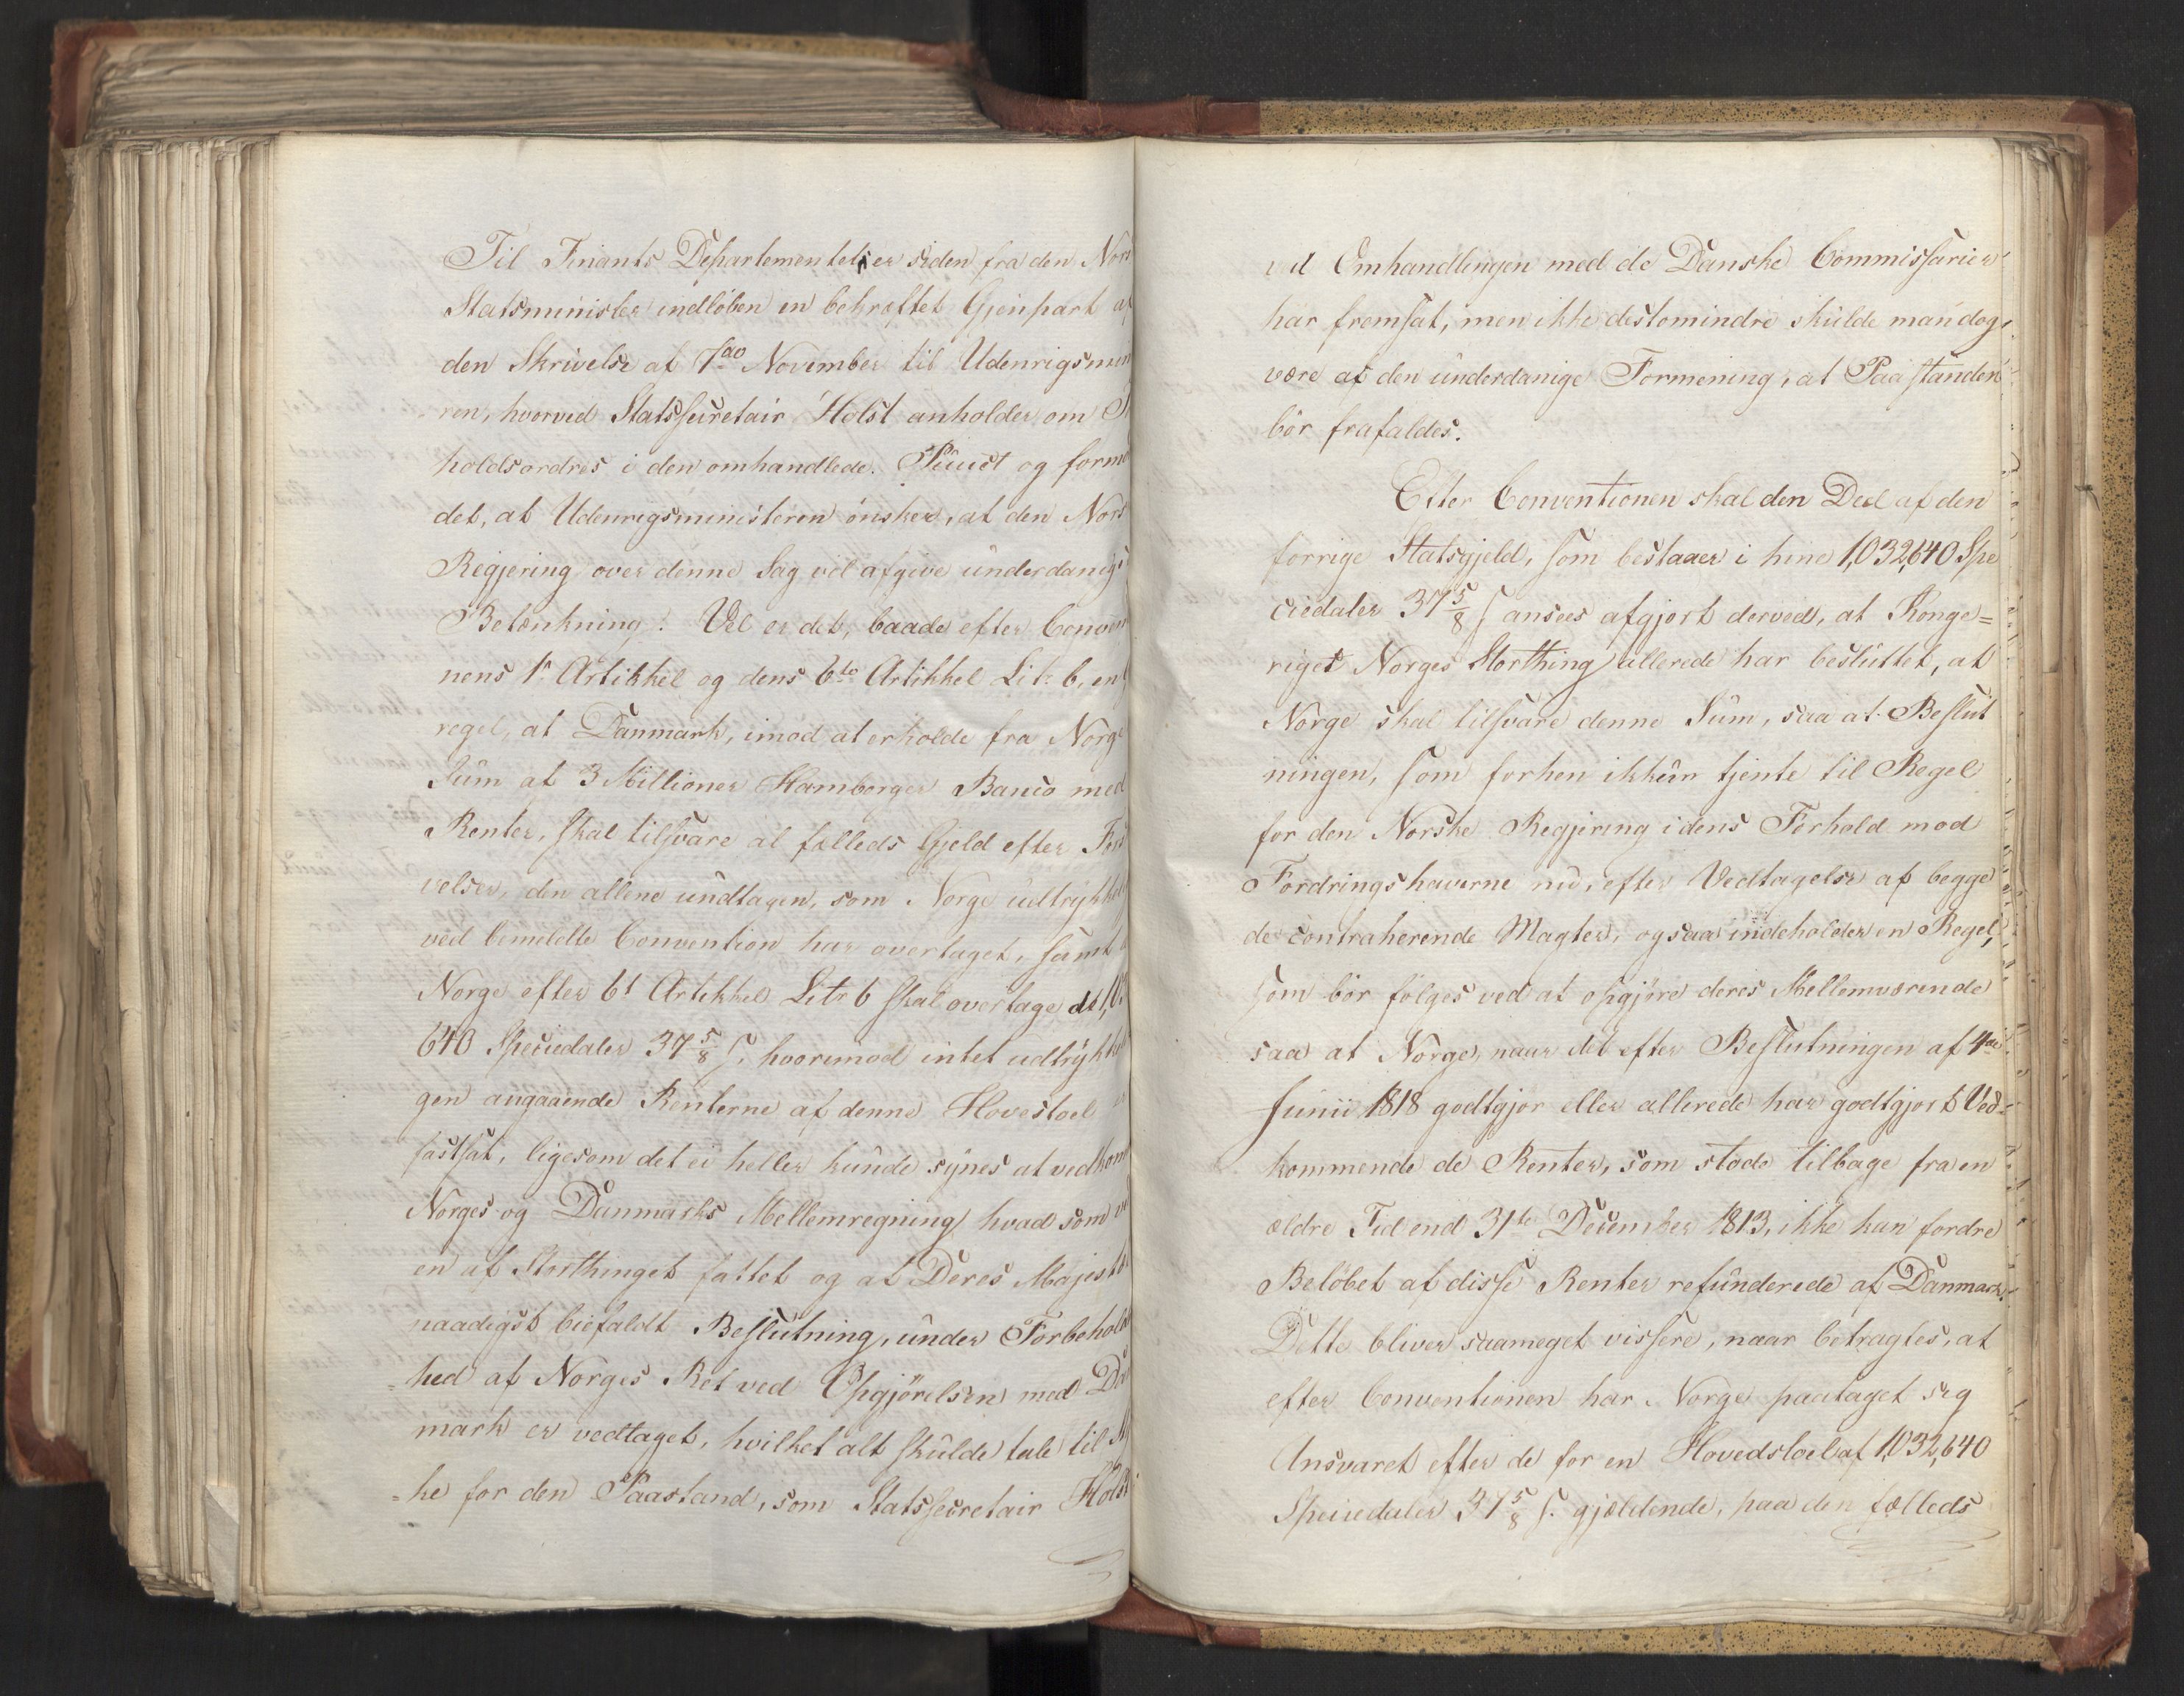 Til Finants Departementet er siden fra den Nor
Statsminister indløben en bekræftet Gjenpart af
den Skrivelse af 7de November til Udenrigsmin
ren, hvorved Statssecretair Holst anholder om
holdsordres i den omhandlede Punct og form
det, at Udenrigsministeren ønsker, at den Nors
Regjering over denne Sag vil afgive underdanigs
Betænkning. Vel er det, baade efter Conven
nens 1ste Artikkel og dens 6te Artikkel Litr b, en
regel, at Danmark, imod at erholde fra Norge
Sum af 3 Millioner Hamborger Banco med
Renter, skal tilsvare al fælleds Gjeld efter For
velser, den allene undtagen, som Norge udtrykkel
ved bemeldte Convention har overtaget, samt
Norge efter 6t Artikkel Litr b skal overtage de 1,03
640 Speciedaler 37 5/8 ſ, hvorimod intet udtrykkel
gen angaaende Renterne af denne Hovestoel
fastsat, ligesom det ei heller kunde synes at vedkom
Norges og Danmarks Mellemregning hvad som ved
en af Storthinget fattet og af Deres Majestæ
naadigst biefaldt Beslutning, under Forbehold
=hed af Norges Ret ved Opgjørelsen med Da
mark er vedtaget, hvilket alt skulde tale til
=ke for den Paastand, som Statssecretair Holst
ved Omhandlingen med de Danske Commissarier
har fremsat, men ikke destomindre skulde man dog
være af den underdanige Formening, at Paastanden
bør frafaldes.
Efter Conventionen skal den Deel af den
forrige Statsgjeld, som bestaaer i hine 1,032,640 Spe
ciedaler 37 5/8 ſ ansees afgjort derved, at Konge=
riget Norges Storthing allerede har besluttet, at
Norge skal tilsvare denne Sum, saa at Beslut
ningen, som forhen ikkun tjente til Regel
for den Norske Regjering i dens Forhold mod
Fordringshaverne nu, efter Vedtagelse af begge
de contraherende Magter, ogsaa indeholder en Regel,
som bør følges ved at opgjøre deres Mellemværende
saa at Norge, naar det efter Beslutningen af 4de
Junii 1818 godtgjør eller allerede har godtgjort Ved=
kommende de Renter, som stode tilbage fra en
ældre Tid end 31te December 1813, ikke kan fordre
Beløbet af disse Renter refunderede af Danmark.
Dette bliver saameget vissere, naar betragtes, at
efter Conventionen har Norge paataget sig
Ansvaret efter de for en Hovedstoel af 1,032,640
Speciedaler 37 5/8 ſ. gjældende, paa den fælleds